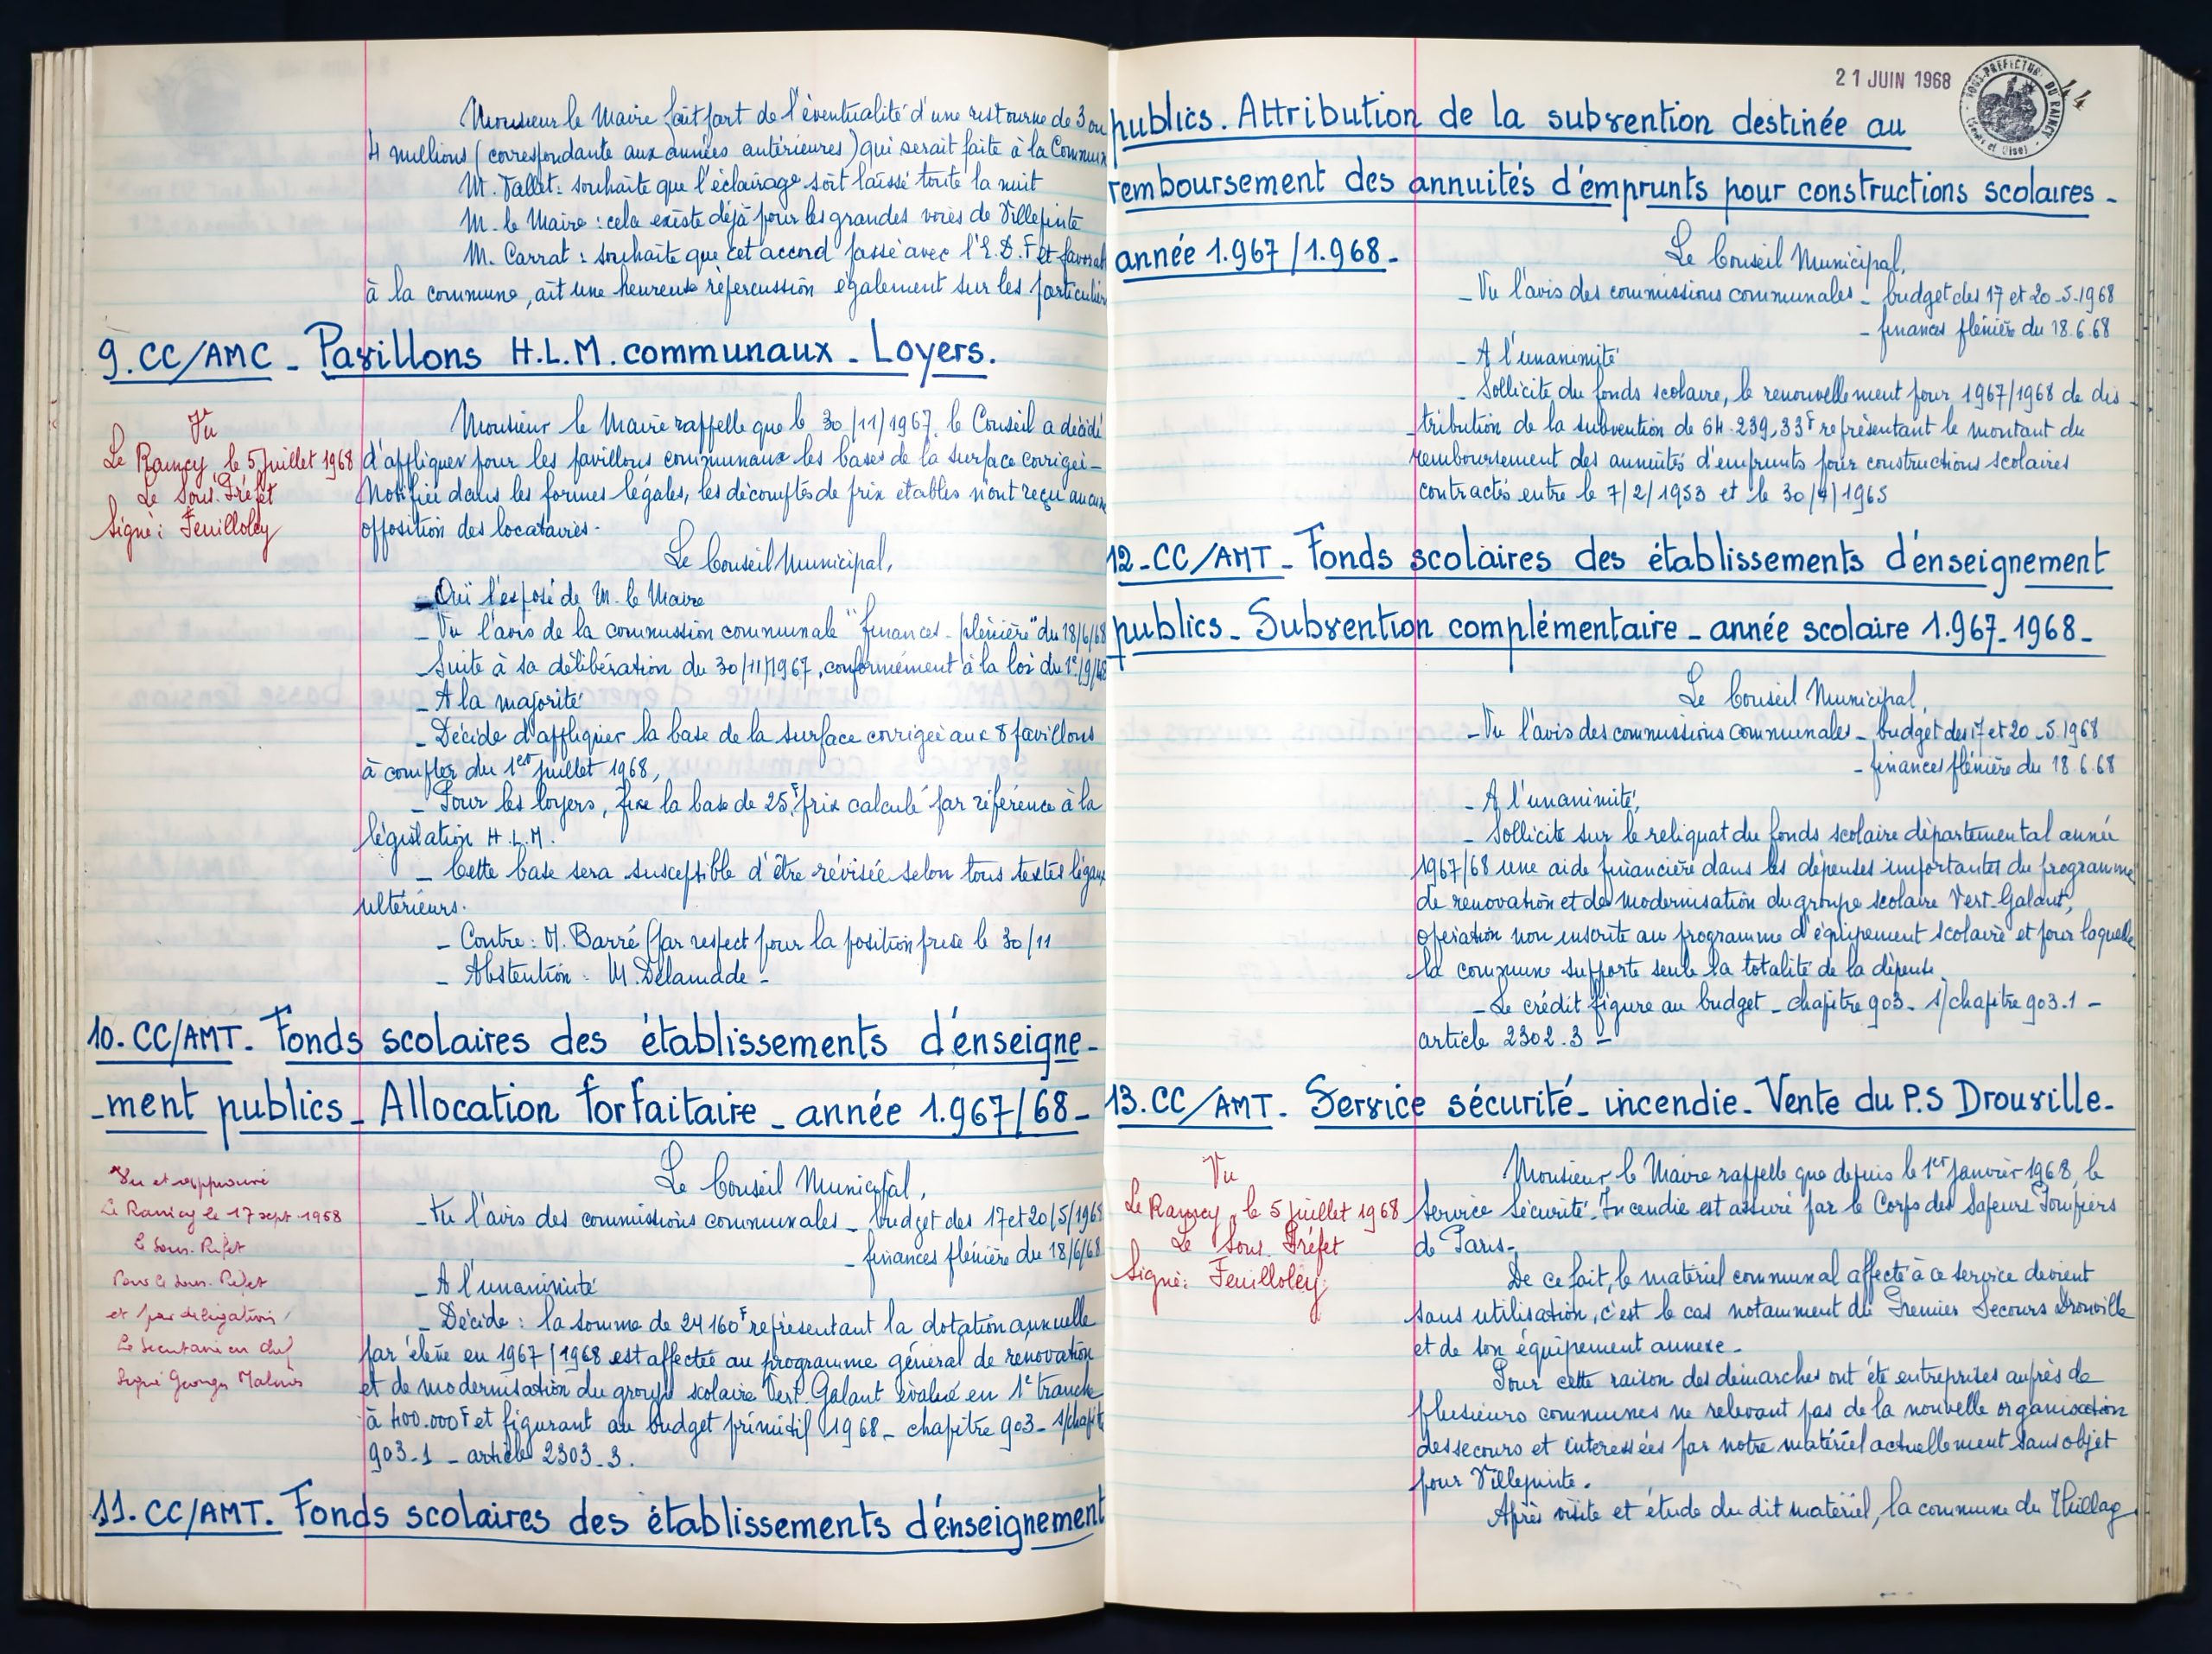 Monsieur le Maire fait part de l'éventualité d'une ristourne de 3 ou
4 millions (correspondante aux années antérieures) qui serait faite à la Commun
M. Vallet : souhaite que l'éclairage soit laissé toute la nuit
M. le Maire : cela existe déjà pour les grandes voies de Villepinte
M. Carrat : souhaite que cet accord passé avec l'E.D.F et favorab
à la commune, ait une heureuse répercussion également sur les particuliers
9. CC/AMC - Pavillons H.L.M. communaux - Loyers.
Vu
Le Raincy, le 5 juillet 1968
Le Sous. Préfet
Signé : Feuilloley
Monsieur le Maire rappelle que le 30/11/1967, le Conseil a décidé
d'appliquer pour les pavillons communaux les bases de la surface corrigée -
Notifiée dans les formes légales, les décomptes de prix établis n'ont reçu aucune
opposition des locataires.
Le Conseil Municipal,
- Ouï l'exposé de M. le Maire
- Vu l'avis de la commission communale "finances - plénière" du 18/6/68
- Suite à sa délibération du 30/11/1967, conformément à la loi du 1e/9/48
- A la majorité
- Décide d'appliquer la base de la surface corrigée aux 8 pavillons
à compter du 1er juillet 1968,
- Pour les loyers, fixe la base de 25F, prix calculé par référence à la
législation H.L.M.
- Cette base sera susceptible d'être révisée selon tous textes légaux
ultérieurs.
- Contre : M. Barré (par respect pour la position prise le 30/11
- Abstention : M. Delamade -
10. CC/AMT. Fonds scolaires des établissements d'enseigne-
-ment publics - Allocation forfaitaire - année 1.967/68 -
Vu et approuvé
Le Raincy le 17 sept 1968
le Sous. Préfet
Pour le Sous. Préfet
et par délégation
Le Secrétaire en chef
Signé Georges Malnis
Le Conseil Municipal,
- Vu l'avis des commissions communales - budget des 17 et 20/5/1968
- finances plénière du 18/6/68
- A l'unanimité
- Décide : la somme de 24 160F représentant la dotation annuelle
par élève en 1967/1968 est affectée au programme général de renovation
et de modernisation du groupe scolaire Vert. Galant évalué en 1e tranche
à 400.000F et figurant au budget primitif 1968 - chapitre 903 - s/chapitre
903-1 - article 2303-3.
11. CC/AMT. Fonds scolaires des établissements d'enseignement
21 JUIN 1968
SOUS-PREFECTURE DU RAINCY
(Seine et Oise)
44
publics. Attribution de la subvention destinée au
remboursement des annuités d'emprunts pour constructions scolaires -
année 1.967/1.968 -
Le Conseil Municipal,
- Vu l'avis des commissions communales - budget des 17 et 20-5-1968
- finances plénière du 18.6.68
- A l'unanimité
- Sollicite du fonds scolaire, le renouvellement pour 1967/1968 de dis
-tribution de la subvention de 64.239,33F représentant le montant du
remboursement des annuités d'emprunts pour constructions scolaires
contractés entre le 7/2/1953 et le 30/4/1965
12-CC/AMT - Fonds scolaires des établissements d'enseignement
publics - Subvention complémentaire - année scolaire 1.967-1968 -
Le Conseil Municipal,
- Vu l'avis des commissions communales - budget des 17 et 20-5.1968
- finances plénière du 18.6.68
- A l'unanimité,
- Sollicite sur le reliquat du fonds scolaire départemental année
1967/68 une aide financière dans les dépenses importantes du programme
de renovation et de modernisation du groupe scolaire Vert-Galant,
opération non inscrite au programme d'équipement scolaire et pour laquelle
la commune supporte seule la totalité de la dépense
- Le crédit figure au budget - chapitre 903 - s/chapitre 903.1 -
article 2302.3 -
13. CC/AMT. Service sécurité - incendie - Vente du P.S Drouville -
Vu
Le Raincy, le 5 juillet 1968
Le Sous. Préfet
Signé : Feuilloley
Monsieur le Maire rappelle que depuis le 1er janvier 1968, le
Service Sécurité-Incendie est assuré par le Corps des Sapeurs Pompiers
de Paris -
De ce fait, le matériel communal affecté à ce service devient
sans utilisation, c'est le cas notamment du Premier Secours Drouville
et de son équipement annexe -
Pour cette raison des démarches ont été entreprises auprès de
plusieurs communes ne relevant pas de la nouvelle organisation
des secours et interessées par notre matériel actuellement sans objet
pour Villepinte.
Après visite et étude du dit matériel, la commune du Thillay